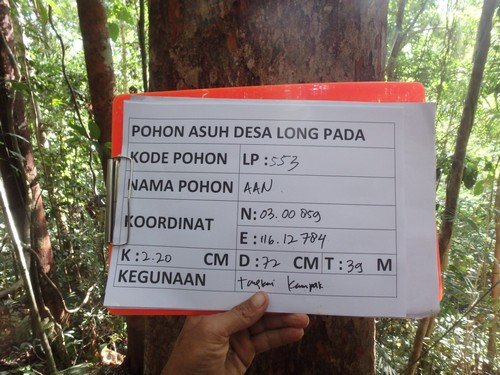 POHON ASUH DESA LONG PADA
KODE POHON LP : 553
NAMA POHON AAN.
KOORDINAT N: 03.00859
E : 116.12784
K : 2.20 CM D : 72 CM T : 39 M
KEGUNAAN